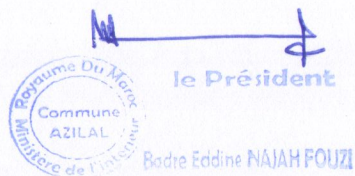 le Président
Royaume Du Maroc
Commune
AZILAL
Ministère de l'Intérieur
Badre Eddine NAJAH FOUZI